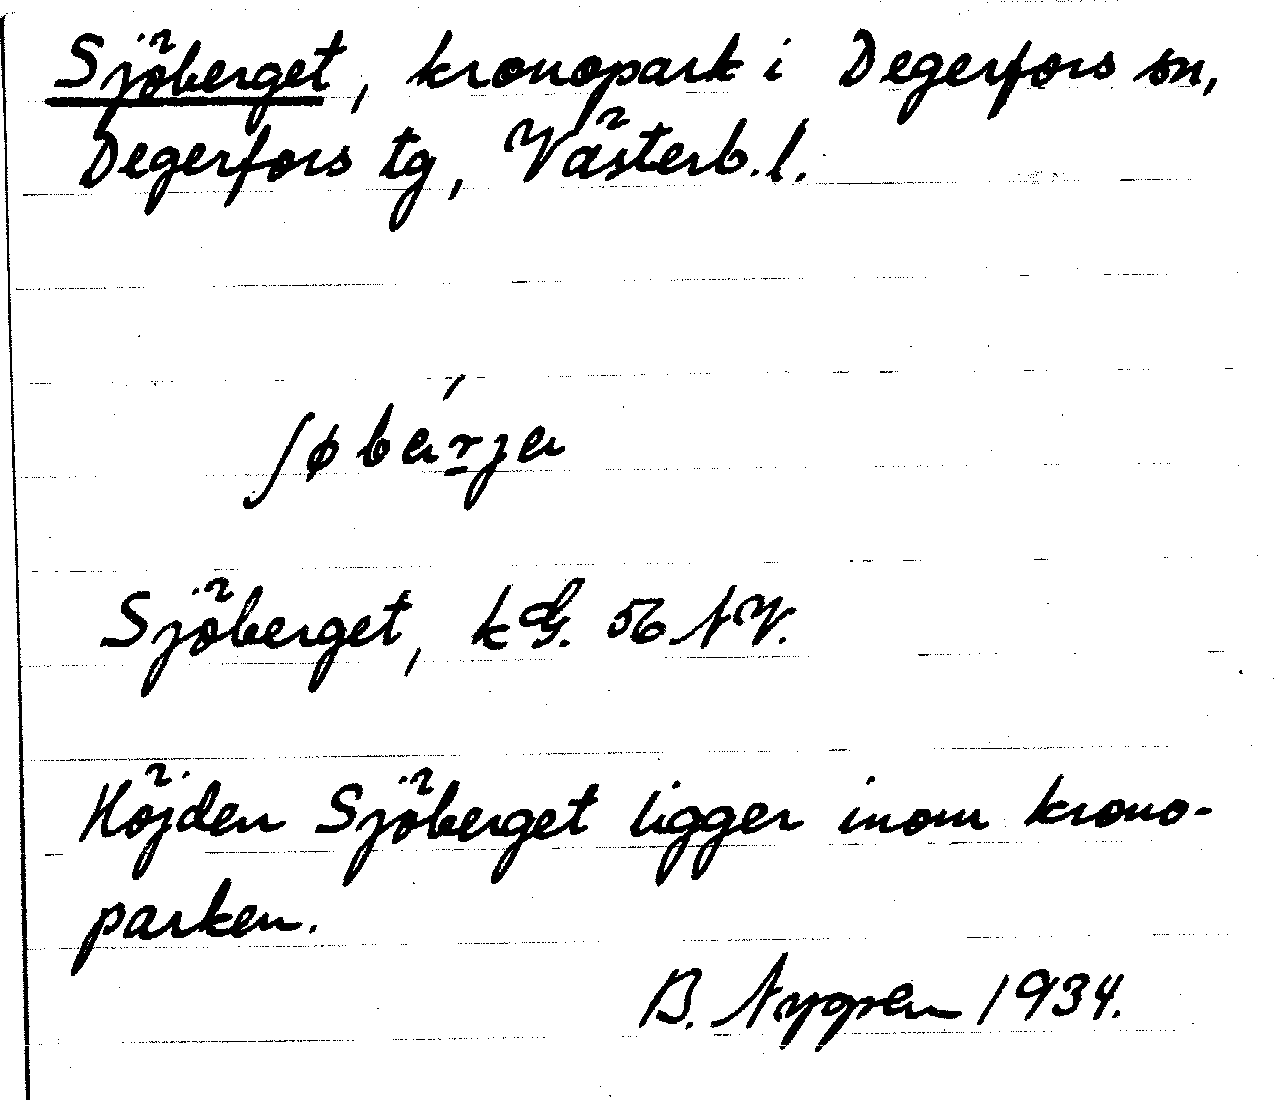 Sjöberget, kronopark i Degerfors sn,
Degerfors tg, Västerb.l.
ʃøbár̲ja
Sjöberget, kG. 56 NV.
Höjden Sjöberget ligger inom krono-
parken.
B. Nygren 1934.